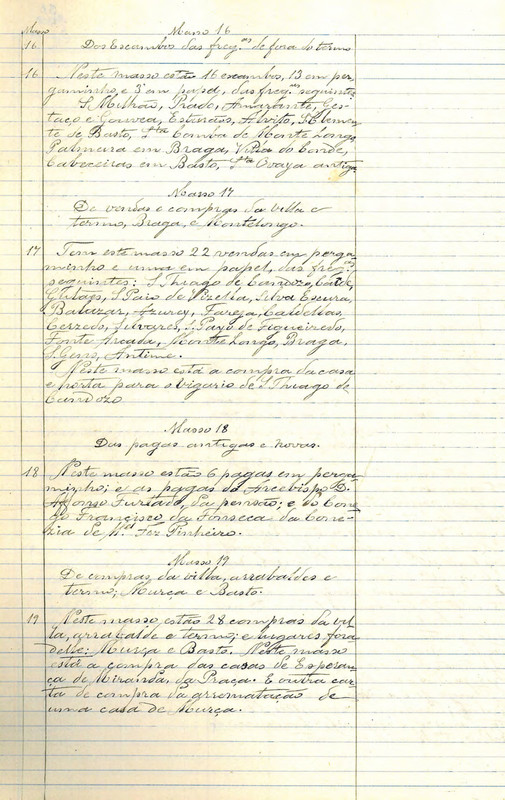 Masso
Masso 16
16 Dos Escambos das freg.as de fora do termo
16 Neste masso estão 16 escambos, 13 em per-
gaminho, e 3 em papel, das freg.as seguintes:
S. Milhão, Prado, Amarante, Ges-
taço e Gouvea, Esturãos, Alvito, S. Clemen-
te de Basto, S.ta Comba de Monte Longo,
Palmeira em Braga, Villa do Conde,
Cabeceiras em Basto, S.ta Ovaya antiga
Masso 17
De vendas e compras da villa e
termo, Braga, e Montelongo.
17 Tem este masso 22 vendas em perga-
minho e uma em papel, das freg.as
seguintes: S. Thiago de Candozo, Calde,
S. Paio de Vizella, Silva Escura,
Balazar, Azurey, Fareja, Caldellas,
Cerzedo, Silvares, S. Payo de Figueiredo,
Fonte Arcada, Monte Longo, Braga,
S. Gens, Antime.
Neste masso está a compra da casa
e horta para o vigario de S. Thiago de
Candozo
Masso 18
Das pagas antigas e novas.
18 Neste masso estão 6 pagas em perga-
minho; e as pagas do Arcebispo D.
Affonso Furtado, da pensão; e do Cone-
go Francisco da Fonseca da Cone-
zia de M.el Fez Pinheiro.
Masso 19
De compras da villa, arrabaldes e
termo; Murça e Basto.
19 Neste masso estão 28 compras da vil-
la, arrabalde e termo; e lugares fora
delle: Murça e Basto. Neste masso
está a compra das casas de Esperan-
ça de Miranda, da Praça. E outra car-
ta de compra da arrematação de
uma casa de Murça.